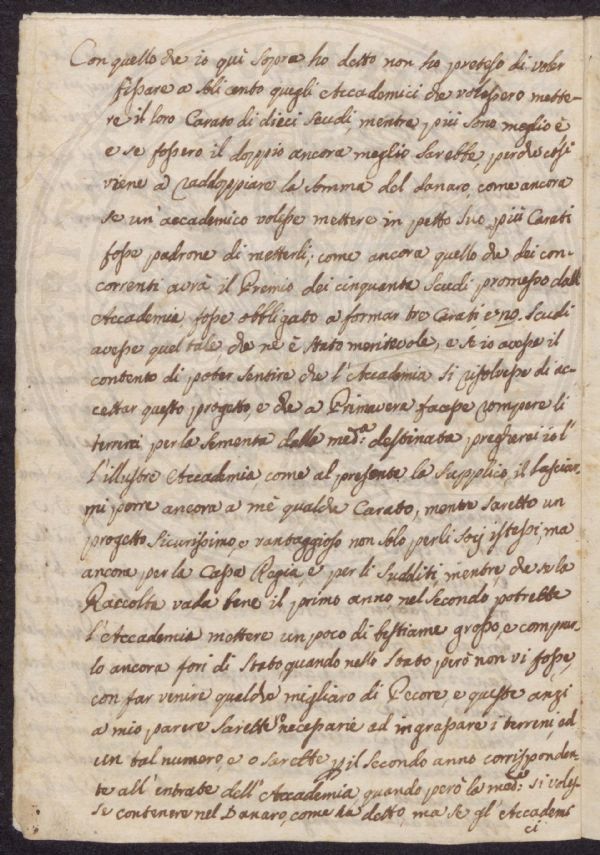 Con quello che io quì sopra ho detto non ho preteso di voler
fissare a soli cento quegli Accademici che volessero mette-
re il loro Carato di dieci Scudi, mentre più sono meglio è
e se fossero il doppio ancora meglio sarebbe, perchè così
viene a raddoppiare la somma del danaro, come ancora
se un'accademico volesse mettere in petto suo più Carati
fosse padrone di metterli; come ancora quello che dei con-
correnti avrà il Premio dei cinquanta Scudi promesso dall'
Accademia fosse obbligato a formar tre Carati, e Scudi
avesse quel tale, che ne è stato meritevole, e se io avesse il
contento di poter sentire che l'Accademia si risolvesse di ac-
cettar questo progetto, e che a Primavera facesse rompere li
terreni per la sementa dalla med.ª destinata pregherei io l'
l'illustre Accademia, come al presente la supplico, il lasciar-
mi porre ancora a mè qualche Carato, mentre saretto un
progetto sicurissimo, e vantaggioso non solo per li soij istessi, ma
ancora per la Cassa Regia, e per li sudditi, mentre, che se la
Raccolta vada bene il primo anno nel secondo potrebbe
l'Accademia mettere un poco di bestiame grosso, e comprar-
lo ancora fori di Stato, quando nello Stato però non vi fosse,
con far venire qualche migliaro di Pecore, e queste anzi
a mio parere sarebbero necessarie ad ingrassare i terreni, ed
un tal numero, e o sarebbe p il secondo anno corrisponden-
te all'entrate dell'Accademia quando però la med.ª si voles-
se contenere nel Danaro, come ha detto, ma se gl'Accademi
ci